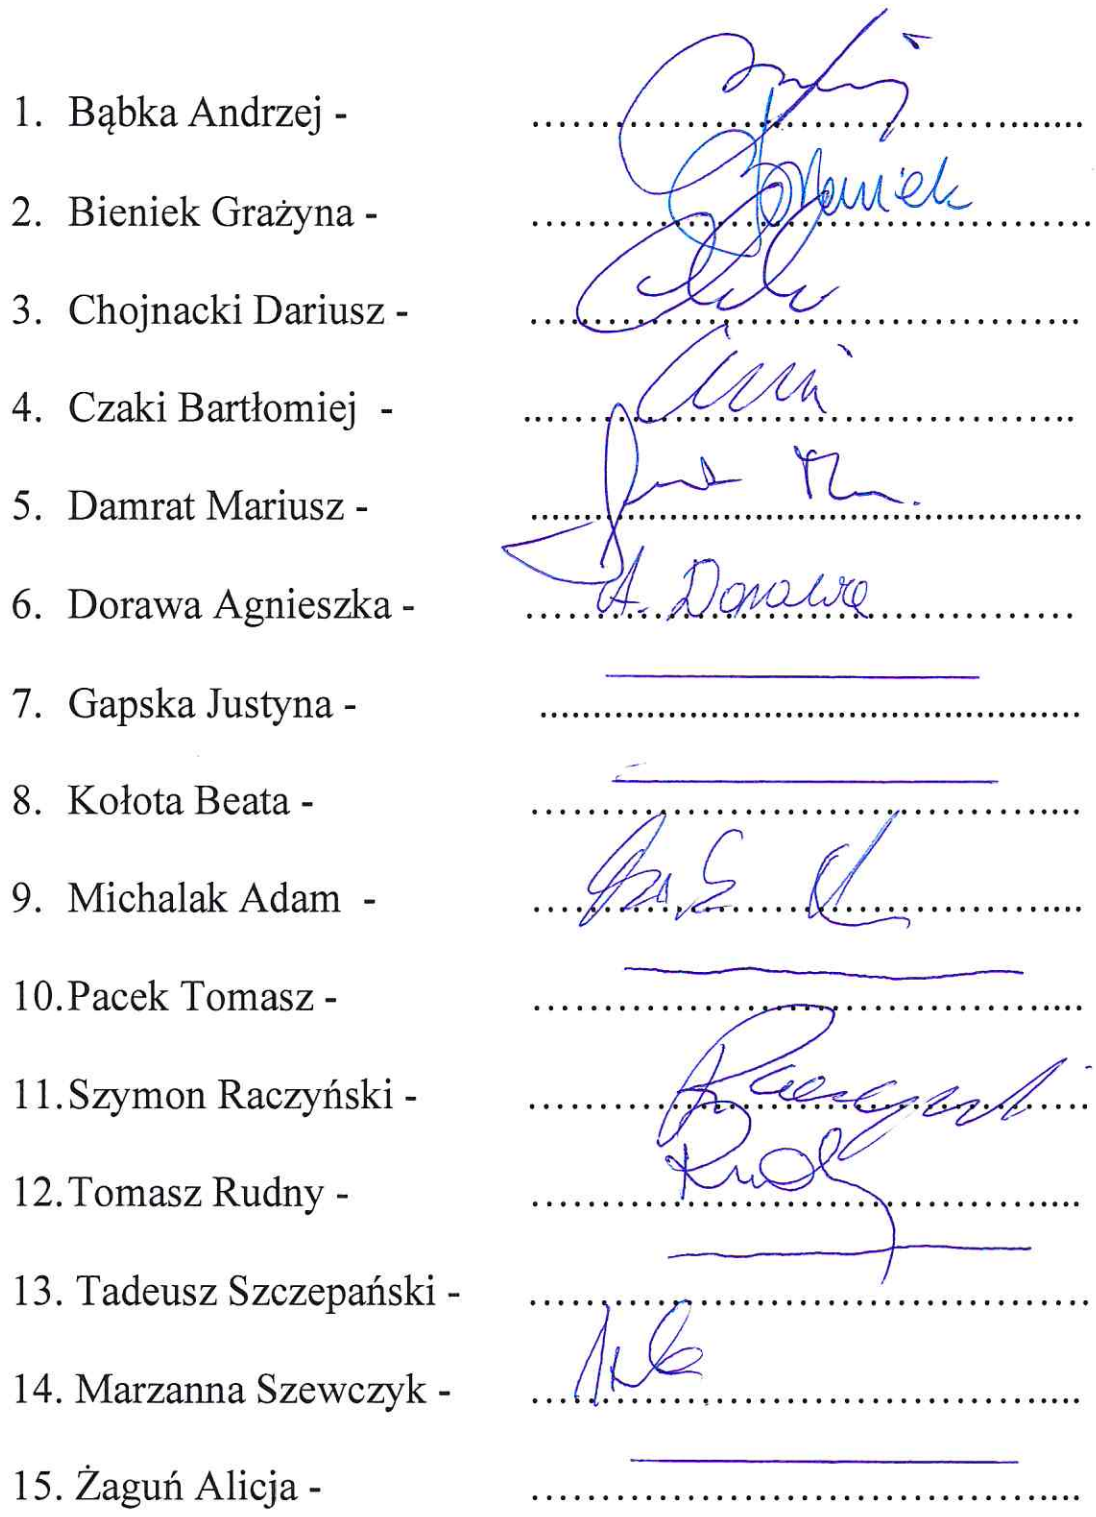 1. Bąbka Andrzej - ................................................
2. Bieniek Grażyna - ................................................
3. Chojnacki Dariusz - ................................................
4. Czaki Bartłomiej - ................................................
5. Damrat Mariusz - ................................................
6. Dorawa Agnieszka - ................................................
A. Dorawa
7. Gapska Justyna - ................................................
8. Kołota Beata - ................................................
9. Michalak Adam - ................................................
10.Pacek Tomasz - ................................................
11.Szymon Raczyński - ................................................
12.Tomasz Rudny - ................................................
13. Tadeusz Szczepański - ................................................
14. Marzanna Szewczyk - ................................................
15. Żaguń Alicja - ................................................